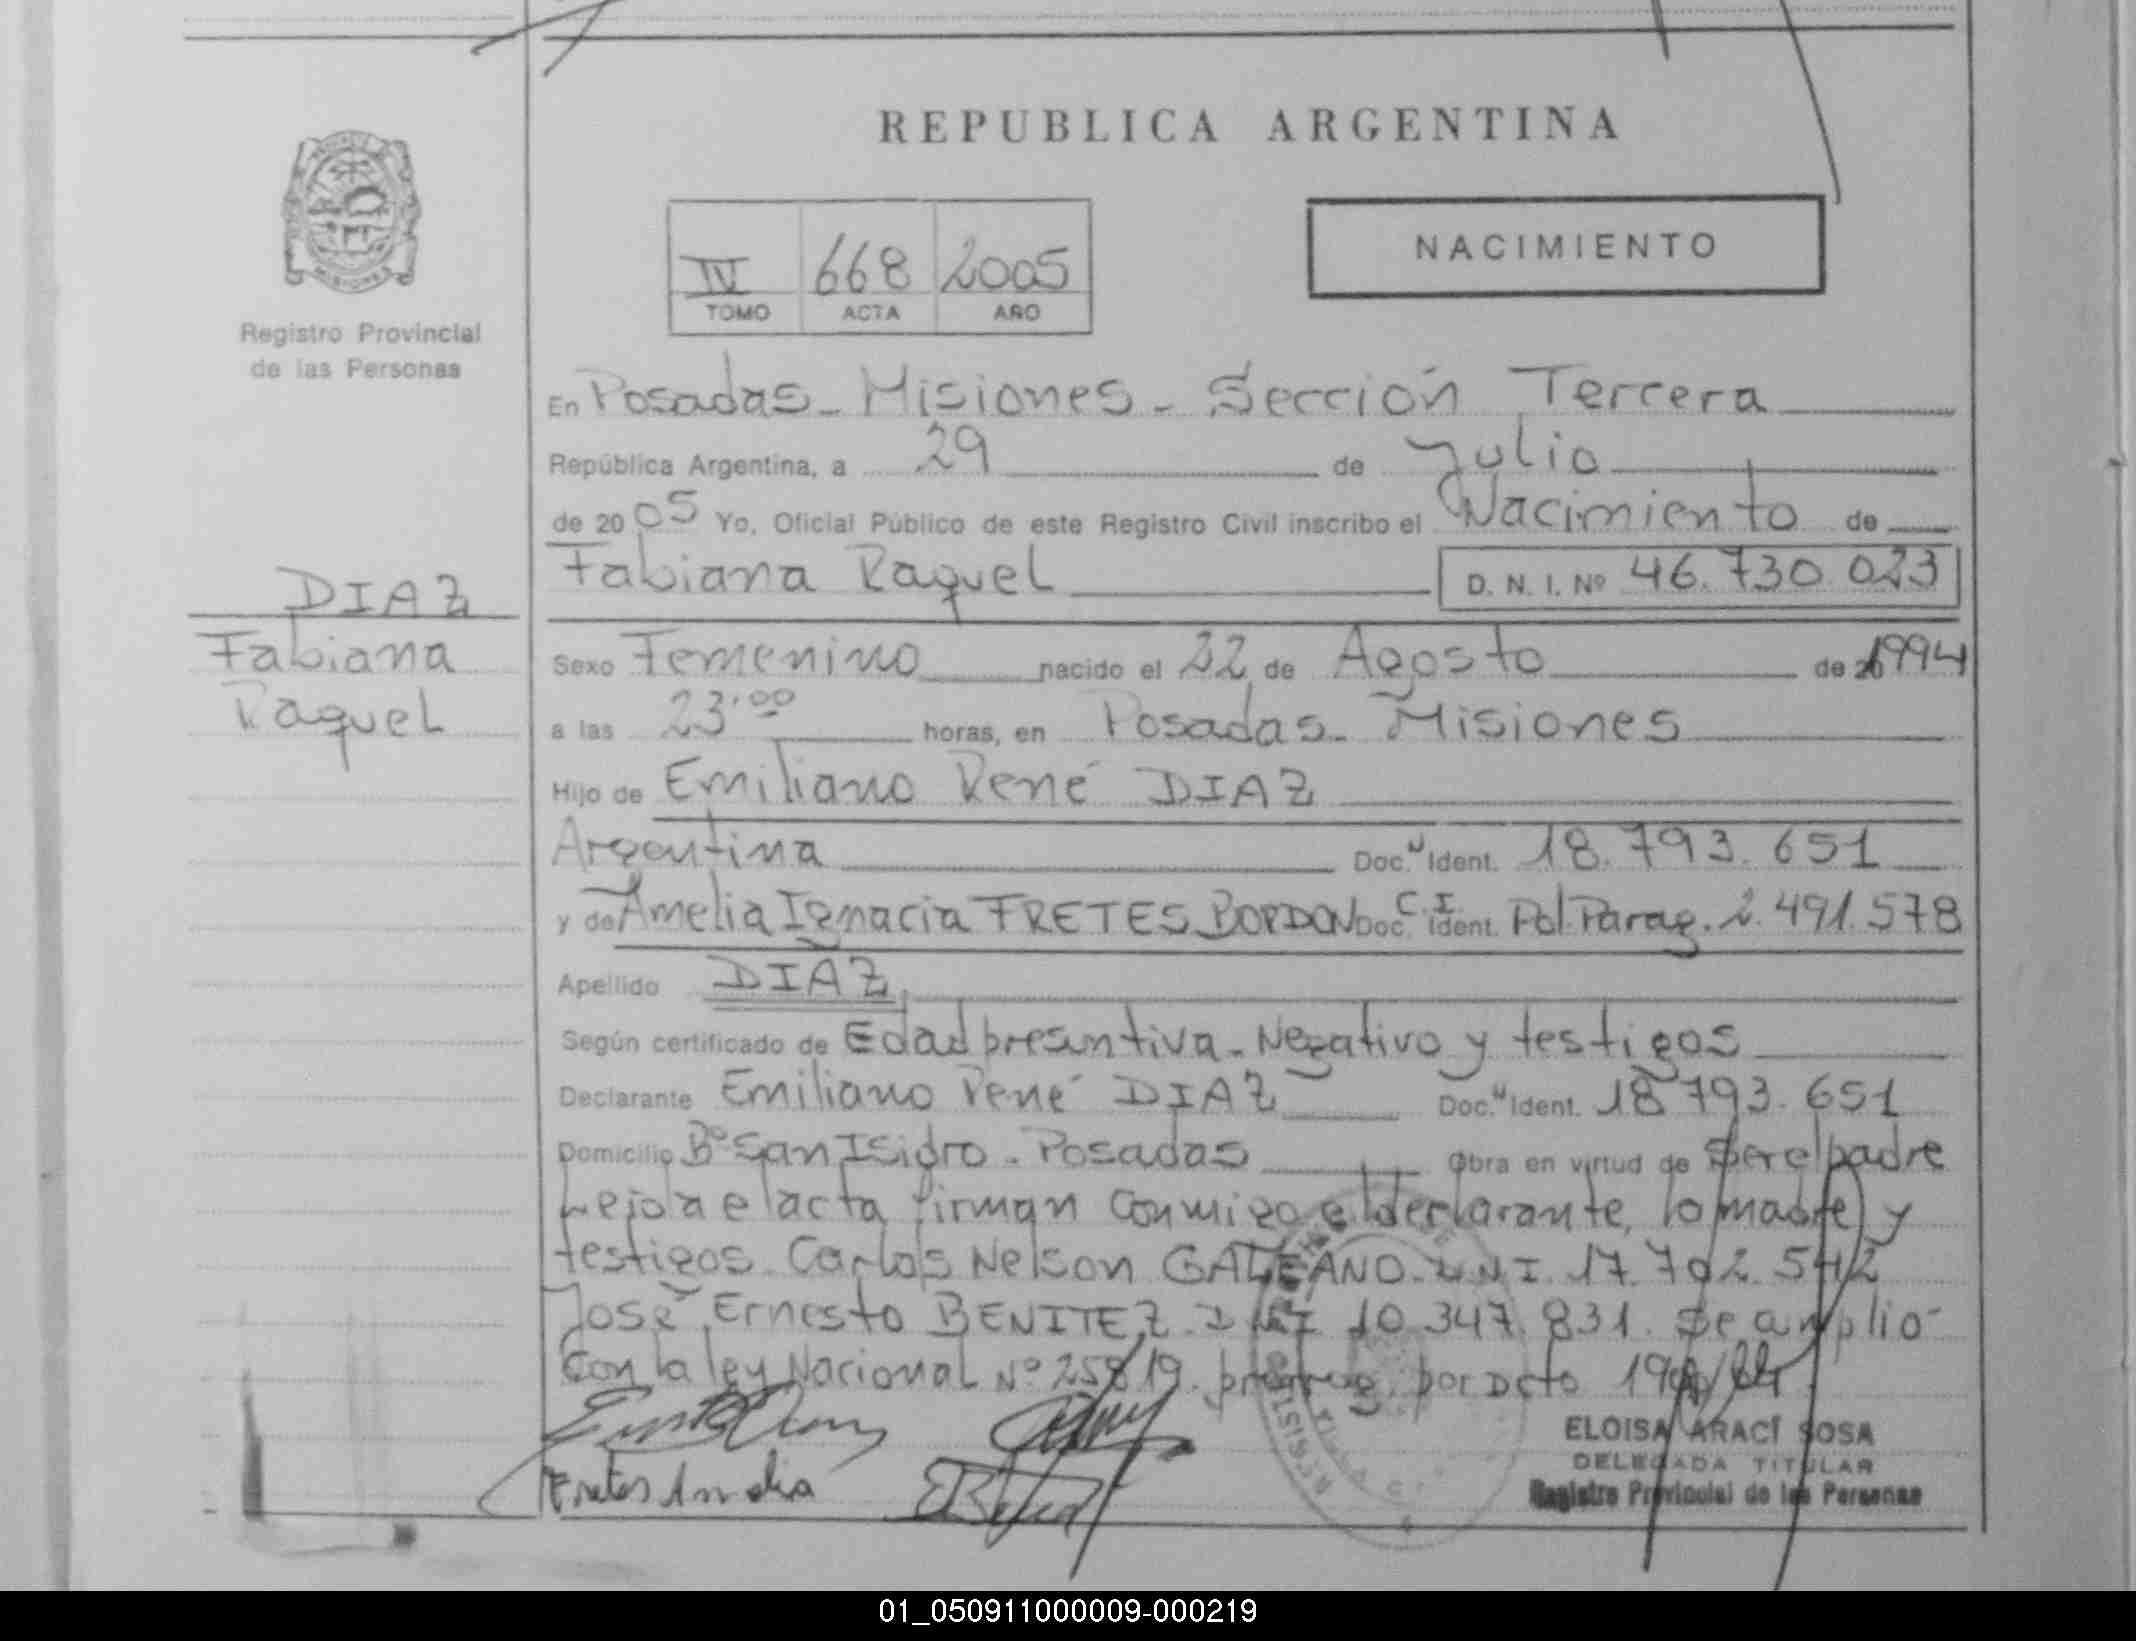 REPUBLICA ARGENTINA
NACIMIENTO
IV 668 2005
TOMO ACTA AÑO
Registro Provincial
de las Personas
En Posadas - Misiones - Sección Tercera
República Argentina, a 29 de Julio
de 2005 Yo, Oficial Público de este Registro Civil inscribo el Nacimiento de
Fabiana Raquel D. N. I. Nº 46.730.023
DIAZ
Fabiana
Raquel
Sexo Femenino nacido el 22 de Agosto de 1994
a las 23:00 horas, en Posadas - Misiones
Hijo de Emiliano René DIAZ
Argentina Doc. Ident. 18.793.651
y de Amelia Ignacia FRETES BORDON Doc. C.I. Ident. Pol. Parag. 2.491.578
Apellido DIAZ
Según certificado de Edad presuntiva - Negativo y testigos
Declarante Emiliano René DIAZ Doc. Ident. 18.793.651
Domicilio Bº San Isidro - Posadas Obra en virtud de ser el padre
Leída el acta firman conmigo el declarante, la madre y
testigos Carlos Nelson GALEANO DNI 17.702.542
José Ernesto BENITEZ DNI 10.347.831. Se amplio
Con la ley Nacional Nº 25819 por Dcto
Fretes Amelia
ELOISA ARACÍ SOSA
DELEGADA TITULAR
Registro Provincial de las Personas
01_050911000009-000219